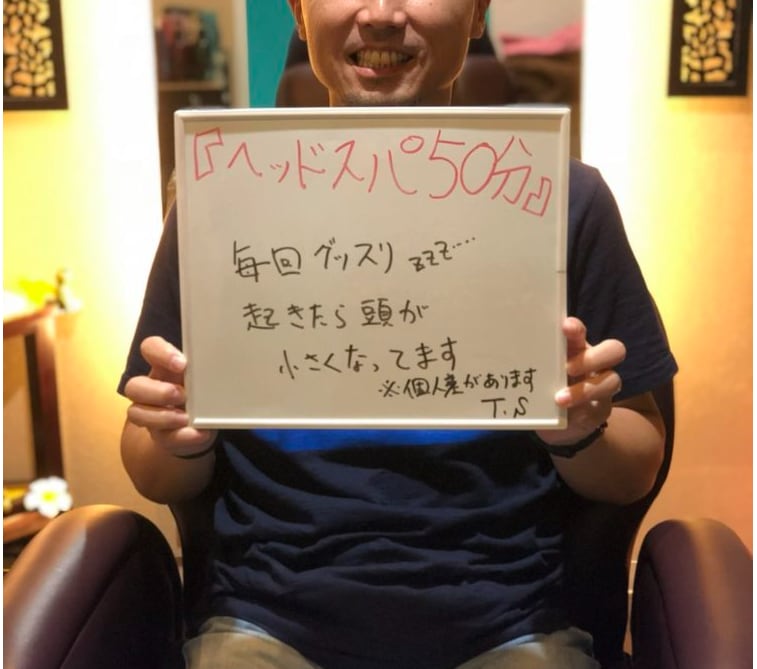 『ヘッドスパ50分』
毎回グッスリzzz....
起きたら頭が
小さくなってます
※個人差があります
T.S